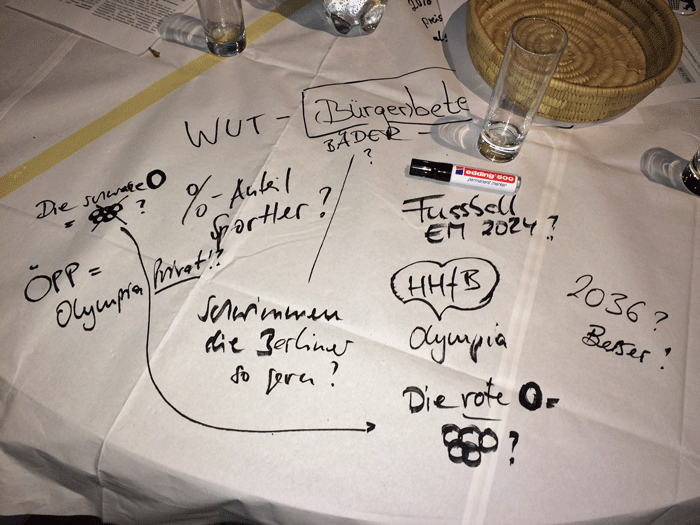 2016
WUT - Bürgerbete
BÄDER -
?
edding 500
permanent marker
Die schwarze O
= ?
%-Anteil
Sportler?
Fussball
EM 2024?
ÖPP = Privat!?
Olympia
HH+B
Olympia
2036?
Besser!
Schwimmen
die Berliner
so gern?
Die rote O =
?